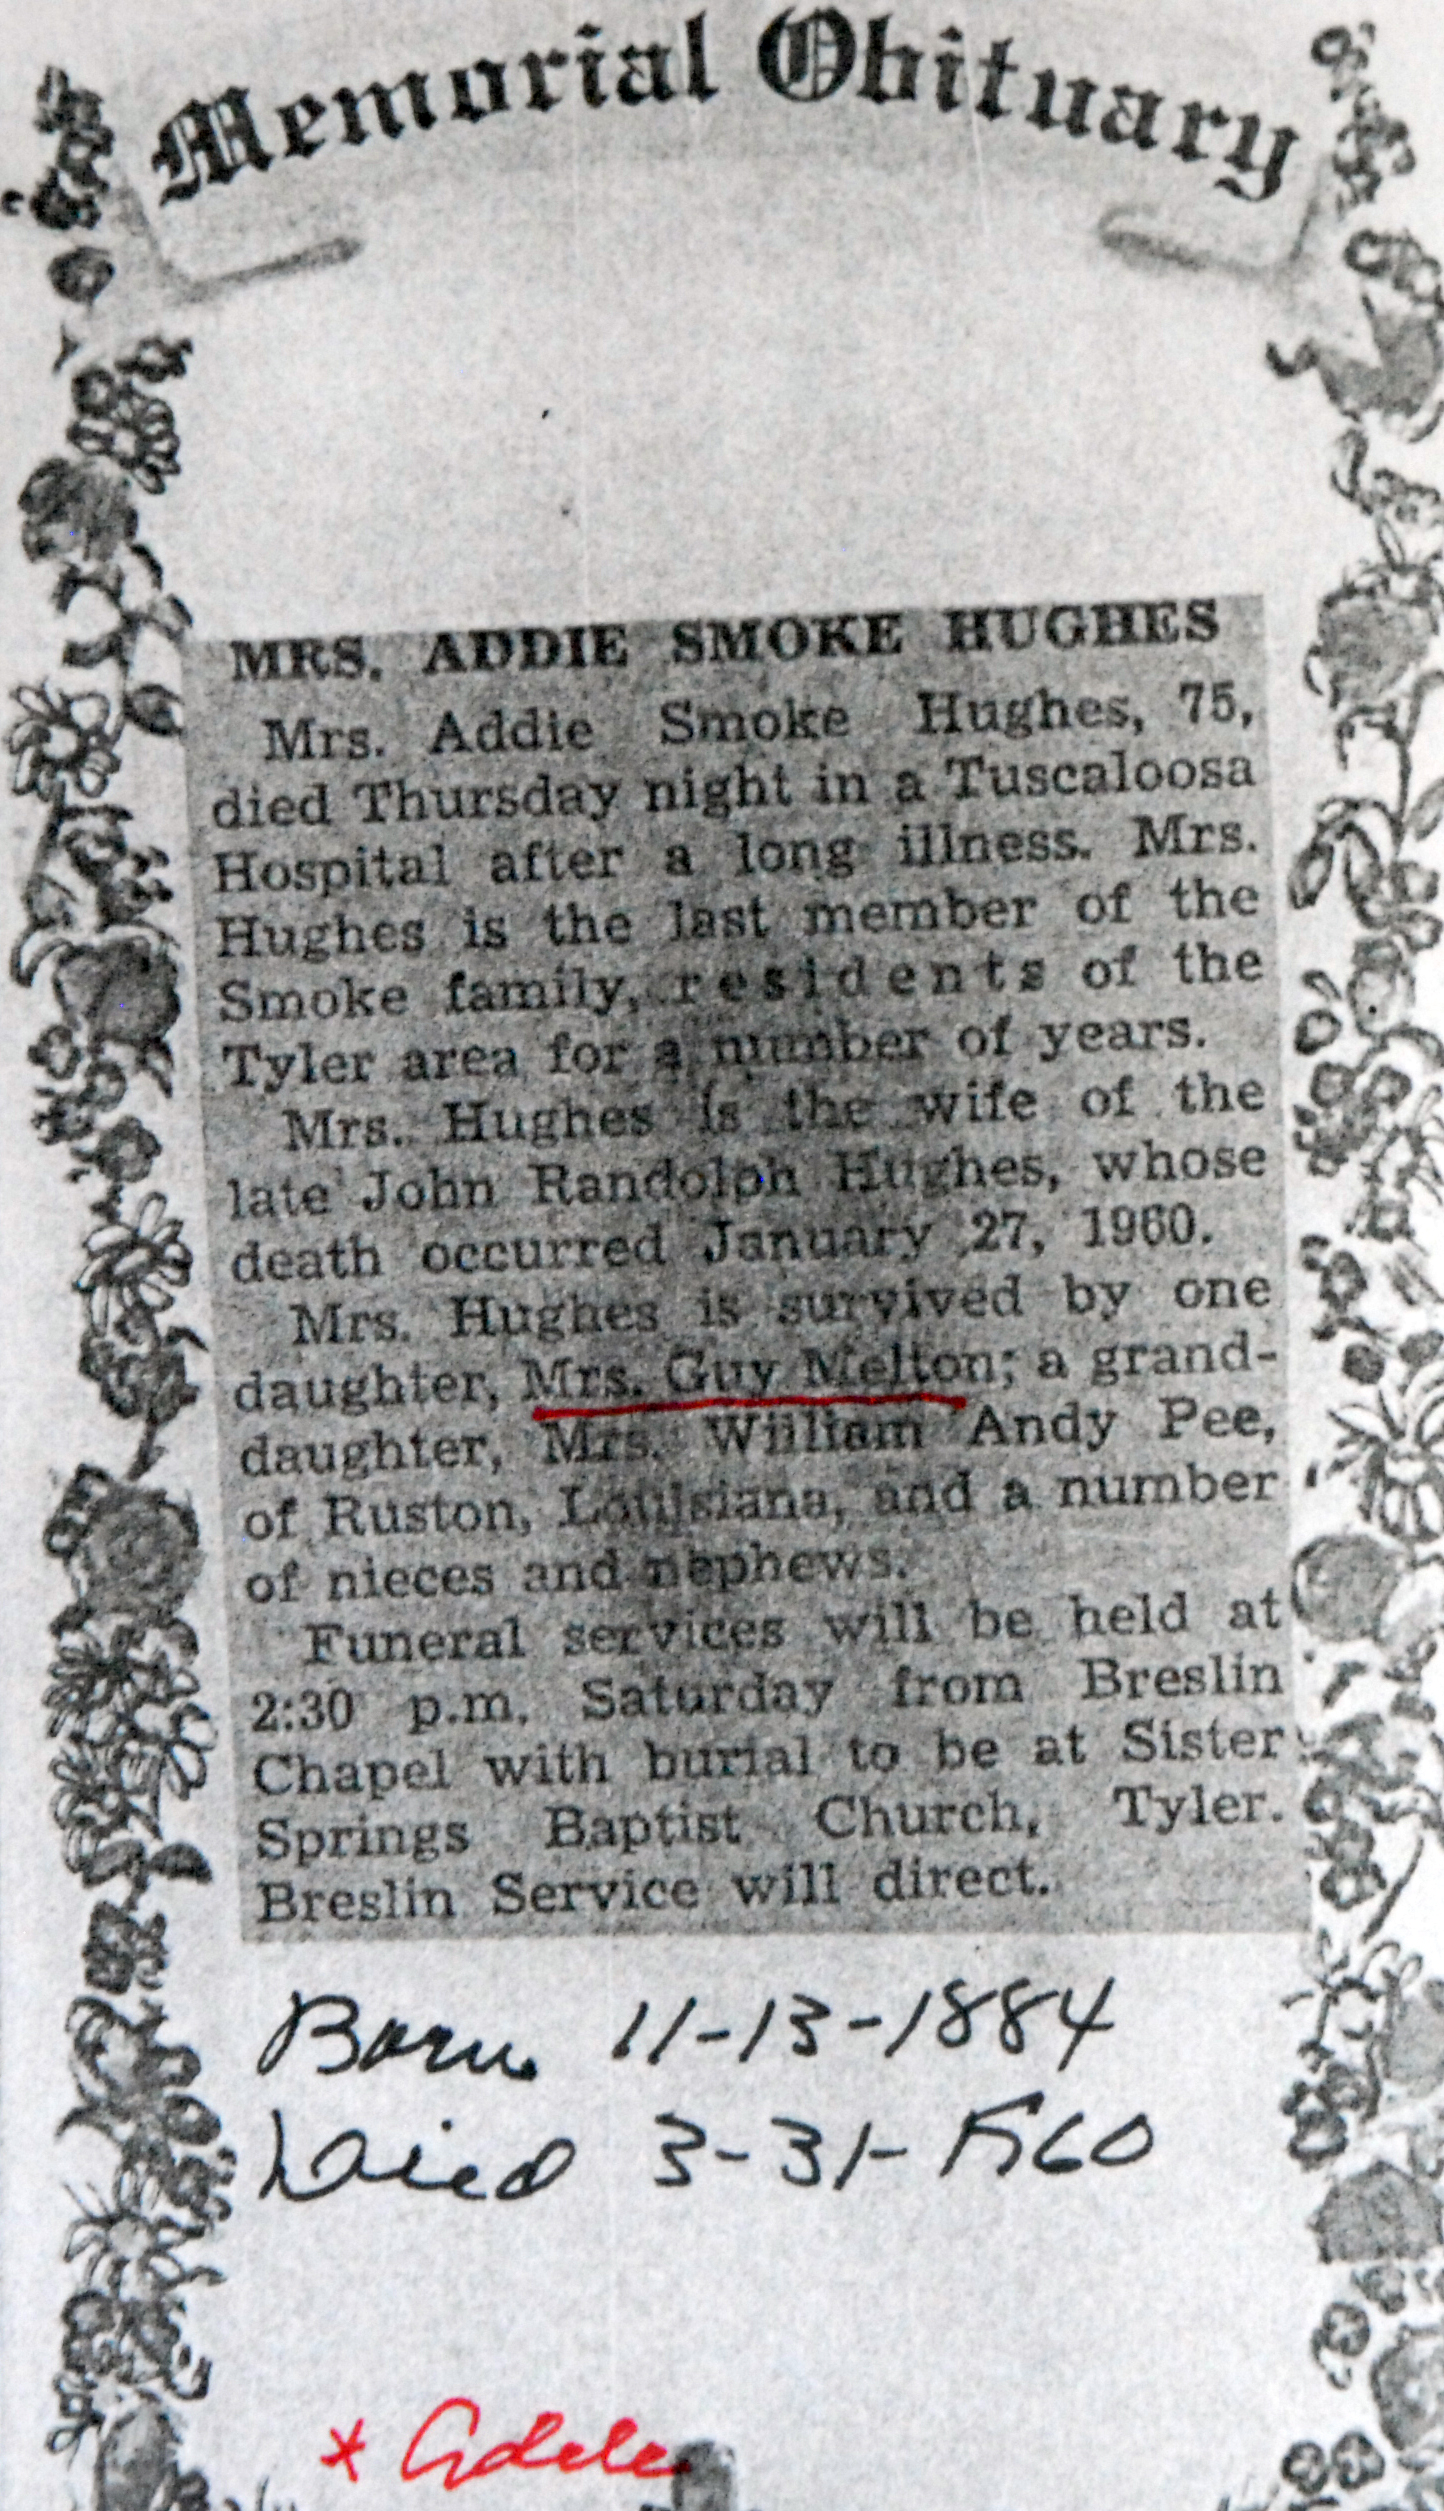 Memorial Obituary
MRS. ADDIE SMOKE HUGHES
Mrs. Addie Smoke Hughes, 75,
died Thursday night in a Tuscaloosa
Hospital after a long illness. Mrs.
Hughes is the last member of the
Smoke family, residents of the
Tyler area for a number of years.
Mrs. Hughes is the wife of the
late John Randolph Hughes, whose
death occurred January 27, 1960.
Mrs. Hughes is survived by one
daughter, Mrs. Guy Melton; a grand-
daughter, Mrs. William Andy Pee,
of Ruston, Louisiana, and a number
of nieces and nephews.
Funeral services will be held at
2:30 p.m. Saturday from Breslin
Chapel with burial to be at Sister
Springs Baptist Church, Tyler.
Breslin Service will direct.
Born 11-13-1884
Died 3-31-1960
* Adele